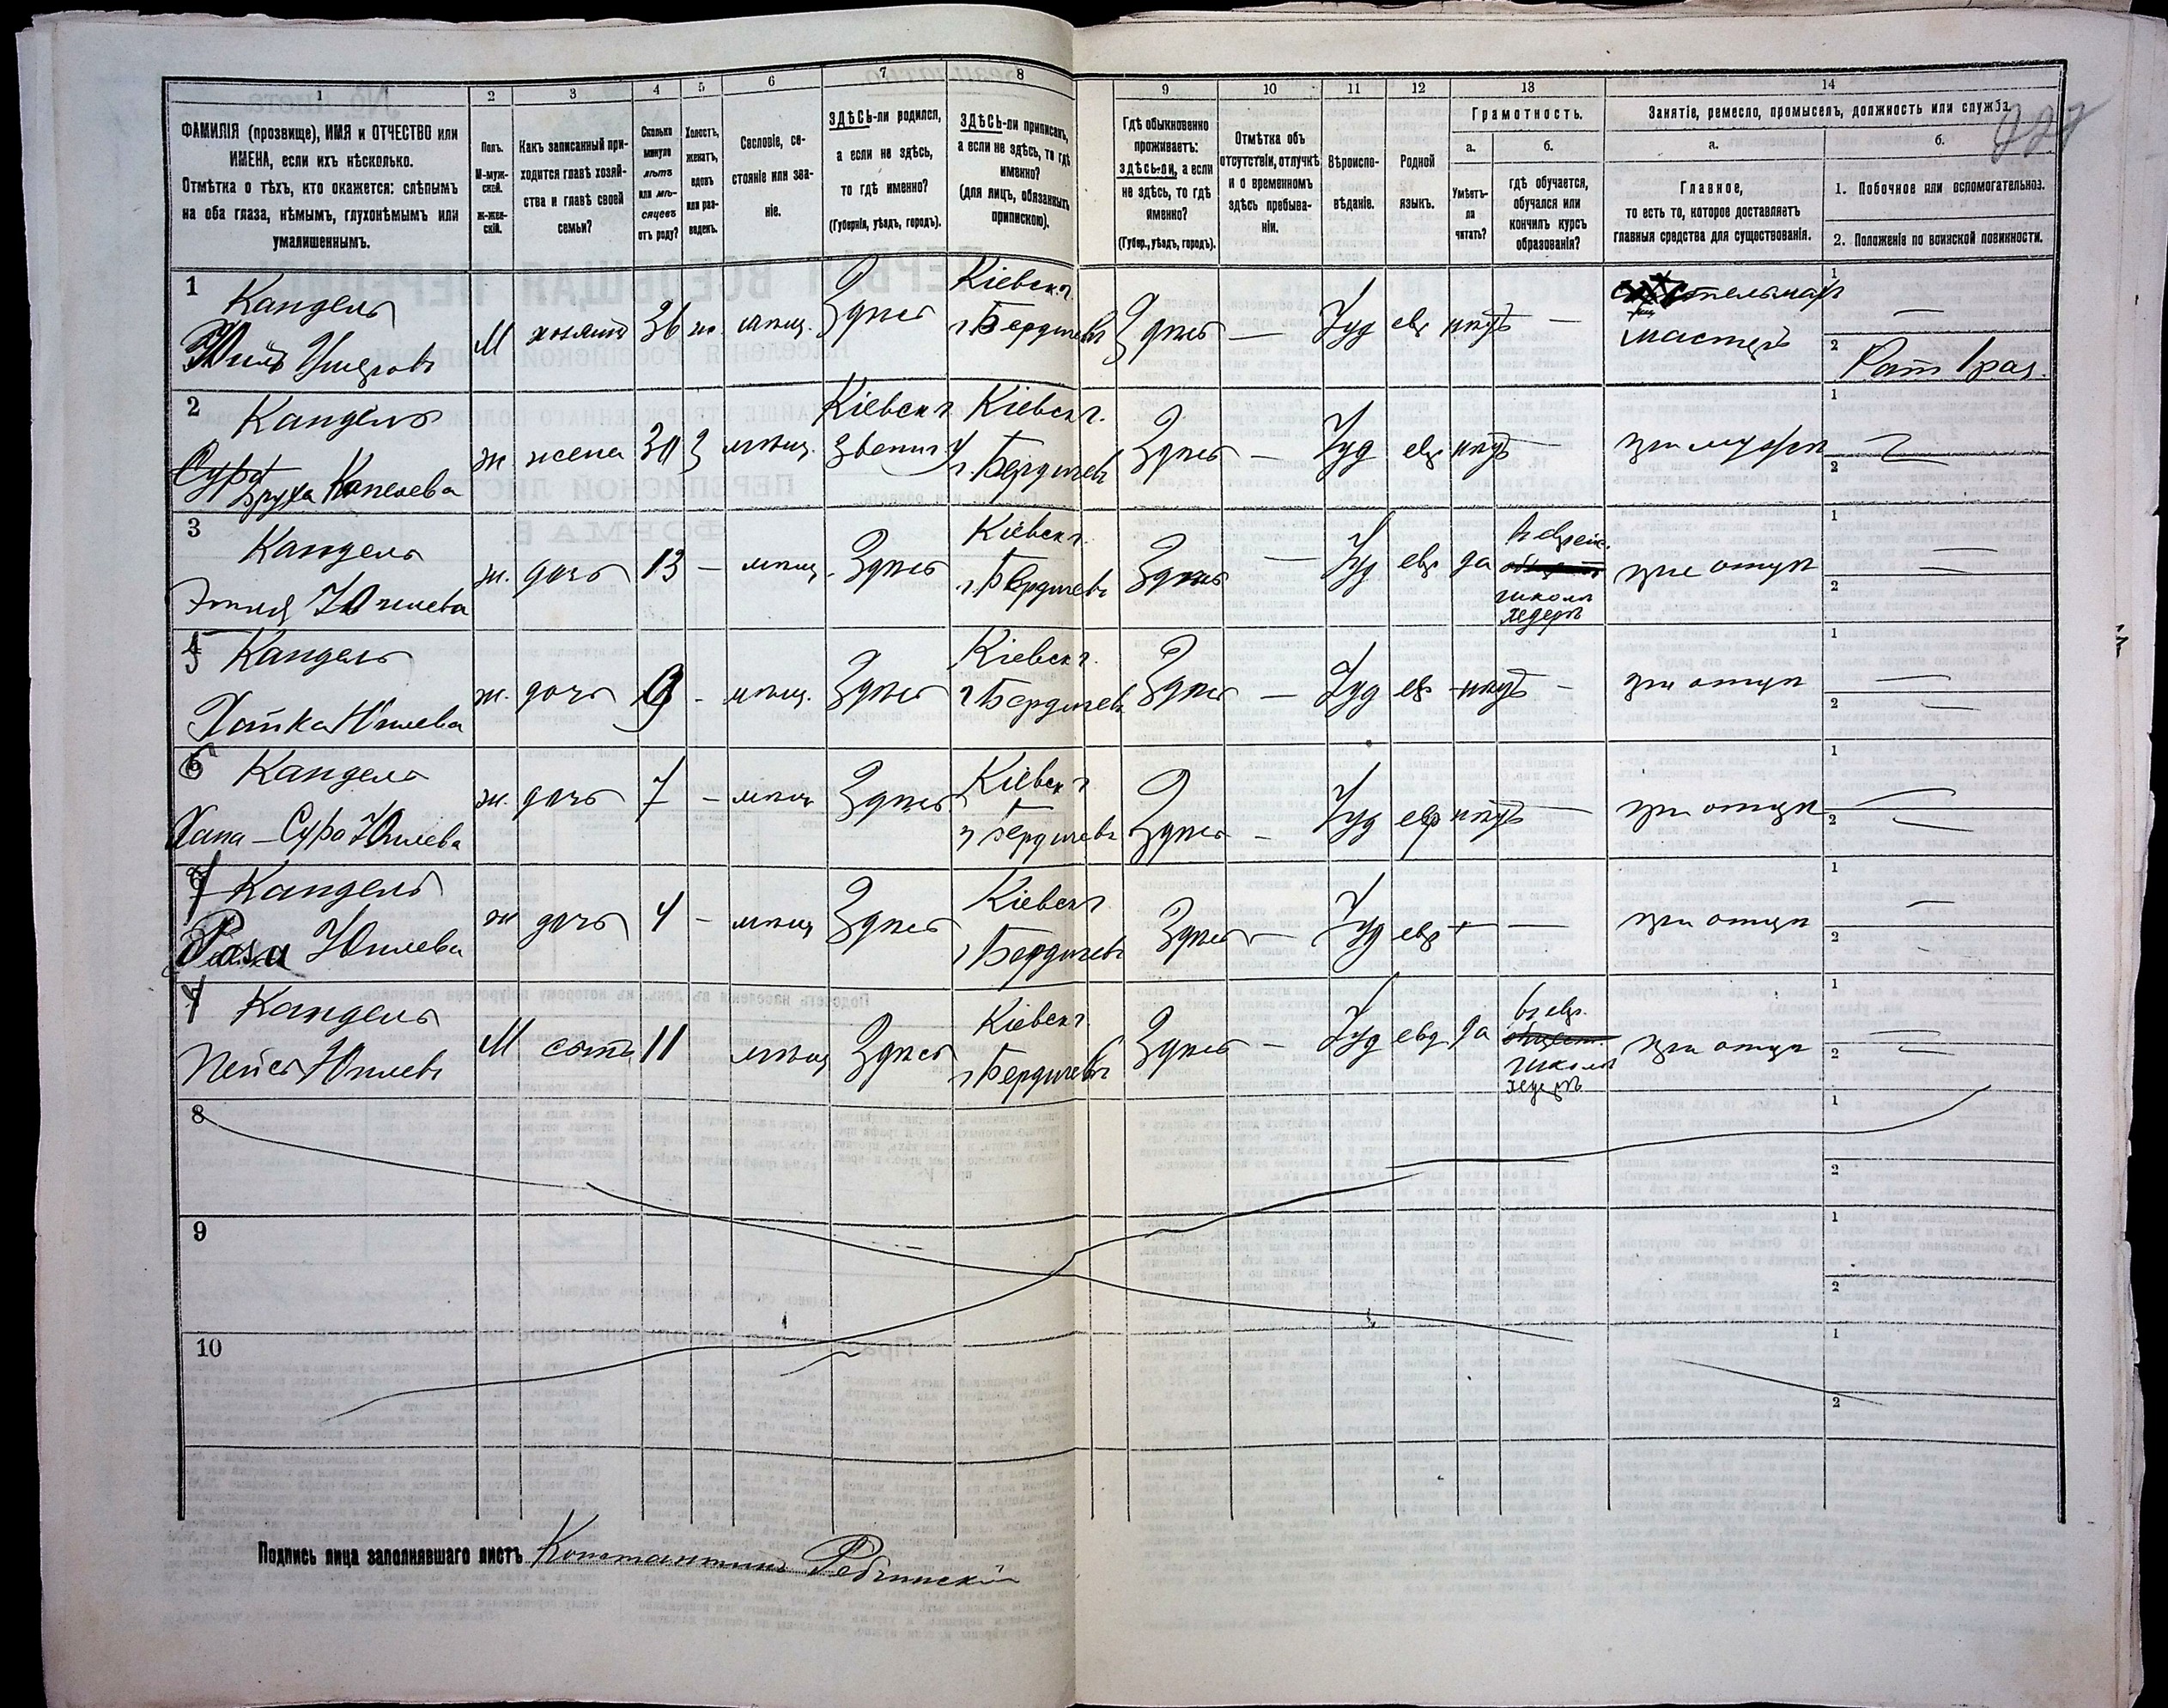 1 2 3 4 5 6 7 8 9 10 11 12 13 14
ФАМИЛІЯ (прозвище), ИМЯ и ОТЧЕСТВО или
ИМЕНА, если ихъ нѣсколько.
Отмѣтка о тѣхъ, кто окажется: слѣпымъ
на оба глаза, нѣмымъ, глухонѣмымъ или
умалишеннымъ.
Полъ.
М-муж-
ской.
Ж-жен-
скій.
Какъ записанный при-
ходится главѣ хозяй-
ства и главѣ своей
семьи?
Сколько
минуло
лѣтъ
или мѣ-
сяцевъ
отъ роду?
Холостъ,
женатъ,
вдовъ
или раз-
веденъ.
Сословіе, со-
стояніе или зва-
ніе.
ЗДѢСЬ-ли родился,
а если не здѣсь,
то гдѣ именно?
(Губернія, уѣздъ, городъ).
ЗДѢСЬ-ли приписанъ,
а если не здѣсь, то гдѣ
именно?
(для лицъ, обязанныхъ
припискою).
Гдѣ обыкновенно
проживаетъ:
здѣсь-ли, а если
не здѣсь, то гдѣ
именно?
(Губер., уѣздъ, городъ).
Отмѣтка объ
отсутствіи, отлучкѣ
и о временномъ
здѣсь пребыва-
ніи.
Вѣроиспо-
вѣданіе.
Родной
языкъ.
Грамотность.
а.
Умѣетъ-
ли
читать?
б.
гдѣ обучается,
обучался или
кончилъ курсъ
образованія?
Занятіе, ремесло, промыселъ, должность или служба.
а.
Главное,
то есть то, которое доставляетъ
главныя средства для существованія.
б.
1. Побочное или вспомогательное.
2. Положеніе по воинской повинности.
1 Кандель
М хозяинъ 36 ж. мѣщ. Здѣсь
Кіевск. г.
г. Бердичевъ
Здѣсь — Іуд евр нѣтъ —
мастеръ
1 —
2 Рат 1 раз.
2 Кандель
Сура Бруха Копелева
ж жена 3 мѣщ.
Кіевск г
Звениг у
Кіевск г.
г. Бердичевъ
Здѣсь — Іуд евр нѣтъ — при мужѣ
1
2
3 Кандель
Юилева
ж. дочь 13 — мѣщ. Здѣсь
Кіевск г.
г. Бердичевъ
Здѣсь — Іуд евр да
въ еврейс.
школѣ
хедеръ
при отцѣ
1
2
5 Кандель
Хайка Юилева
ж. дочь 9 - мѣщ. Здѣсь
Кіевск г.
г Бердичевъ
Здѣсь — Іуд ев нѣтъ — при отцѣ
1
2
6 Кандель
Хана - Сура Юилева
ж. дочь 7 - мѣщ Здѣсь
Кіевск г
г Бердичевъ
Здѣсь — Іуд евр нѣтъ — при отцѣ
1
2
7 Кандель
Роза Юилева
ж дочь 4 - мѣщ Здѣсь
Кіевск г
г Бердичевъ
Здѣсь — Іуд евр — — при отцѣ
1
2
7 Кандель
Пейсъ Юилевъ
М сынъ 11 мѣщ Здѣсь
Кіевск г.
г Бердичевъ
Здѣсь — Іуд евр да
въ евр.
школѣ
хедеръ
при отцѣ
1
2
8
1
2
9
1
2
10
1
2
Подпись лица заполнявшаго листъ Константинъ